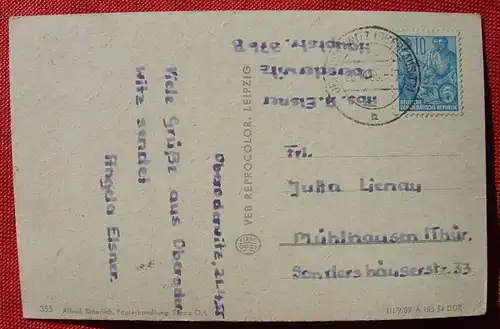 Oberoderwitz, 21.4.55
Viele Grüße aus Oberoder-
witz sendet
Angela Elsner.
Abs. A. Elsner
Oberoderwitz
Hauptstr. 376 B
VEB REPROCOLOR, LEIPZIG
10
DEUTSCHE
DEMOKRATISCHE REPUBLIK
b
Frl.
Jutta Lienau
Mühlhausen (Thür.
Sondershäuserstr. 33
355 Alfred Österlich, Papierhandlung, O. L.
III/9/89 A 185 54 DDR